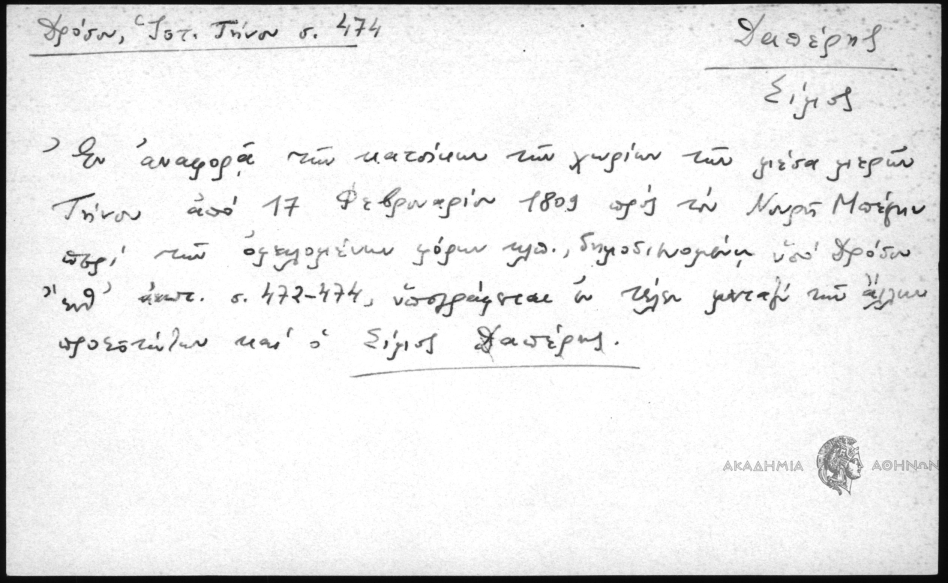 Δρόσου, Ἱστ. Τήνου σ. 474
Δαπέρης
Σίμος
Ἐν ἀναφορᾷ τῶν κατοίκων τῶν χωρίων τῶν μέσα μερῶν
Τήνου ἀπό 17 Φεβρουαρίου 1809 πρός τόν Μπέην
περί τῶν ὀφειλομένων φόρων κλπ., δημοσιευομένῃ ὑπό Δρόσου
ἔνθ' ἀνωτ. σ. 472-474, ὑπογράφεται ἐν τέλει μεταξύ τῶν ἄλλων
προεστώτων καί ὁ Σίμος Δαπέρης.
ΑΚΑΔΗΜΙΑ ΑΘΗΝΩΝ